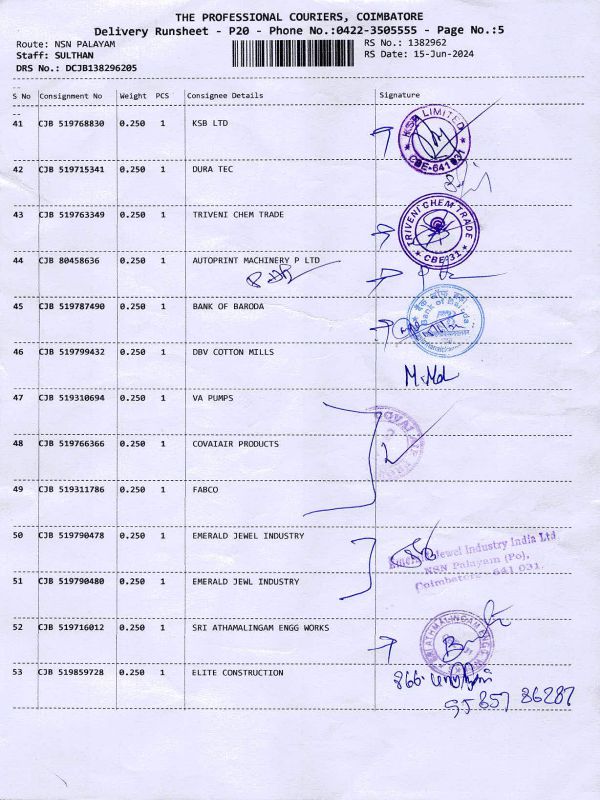 THE PROFESSIONAL COURIERS, COIMBATORE
Delivery Runsheet - P20 - Phone No.:0422-3505555 - Page No.:5
Route: NSN PALAYAM RS No.: 1382962
Staff: SULTHAN RS Date: 15-Jun-2024
DRS No.: DCJB138296205
S No Consignment No Weight PCS Consignee Details Signature
41 CJB 519768830 0.250 1 KSB LTD
KSB LIMITED
CBE-641 031
42 CJB 519715341 0.250 1 DURA TEC
43 CJB 519763349 0.250 1 TRIVENI CHEM TRADE
TRIVENI CHEM TRADE
CBE-31
44 CJB 80458636 0.250 1 AUTOPRINT MACHINERY P LTD
45 CJB 519787490 0.250 1 BANK OF BARODA
Bank of Baroda
46 CJB 519799432 0.250 1 DBV COTTON MILLS
47 CJB 519310694 0.250 1 VA PUMPS
48 CJB 519766366 0.250 1 COVAIAIR PRODUCTS
49 CJB 519311786 0.250 1 FABCO
50 CJB 519790478 0.250 1 EMERALD JEWEL INDUSTRY
Jewel Industry India Ltd
NSN Palayam (Po),
Coimbatore - 641 031.
51 CJB 519790480 0.250 1 EMERALD JEWL INDUSTRY
52 CJB 519716012 0.250 1 SRI ATHAMALINGAM ENGG WORKS
SRI ATHMALINGAM ENGG
53 CJB 519859728 0.250 1 ELITE CONSTRUCTION
86287